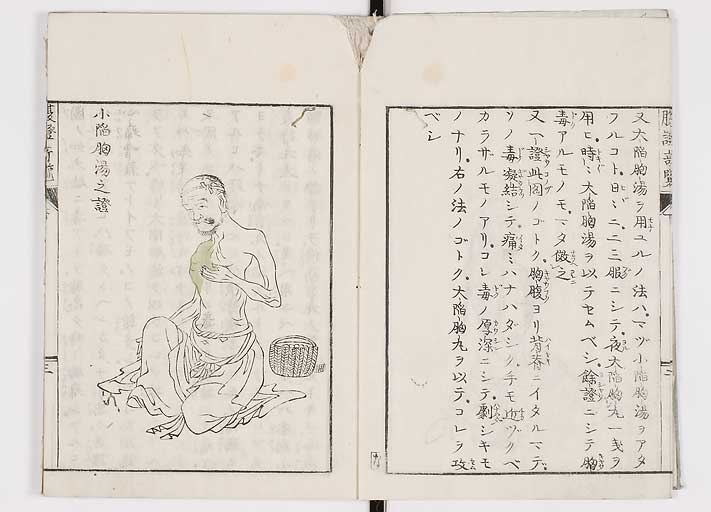 又大陥胸湯ヲ用ユルノ法ハ、マヅ小陥胸湯ヲアタ
フルコト、日ニ二三服ニシテ、夜大陥胸丸一戔ヲ
用ヒ、時ニ大陥胸湯ヲ以テセムベシ、餘證ニシテ胸
毒アルモノモ、マタ倣之
又一證此圖ノゴトク、胸腹ヨリ背脊ニイタルマデ、
ソノ毒凝結シテ痛ミハナハダシク、手モ近ヅクベ
カラザルモノアリ、コレ毒ノ厚深ニシテ劇シキモ
ノナリ、右ノ法ノゴトク、大陥胸丸ヲ以テ、コレヲ攻
ベシ
小陥胸湯之證